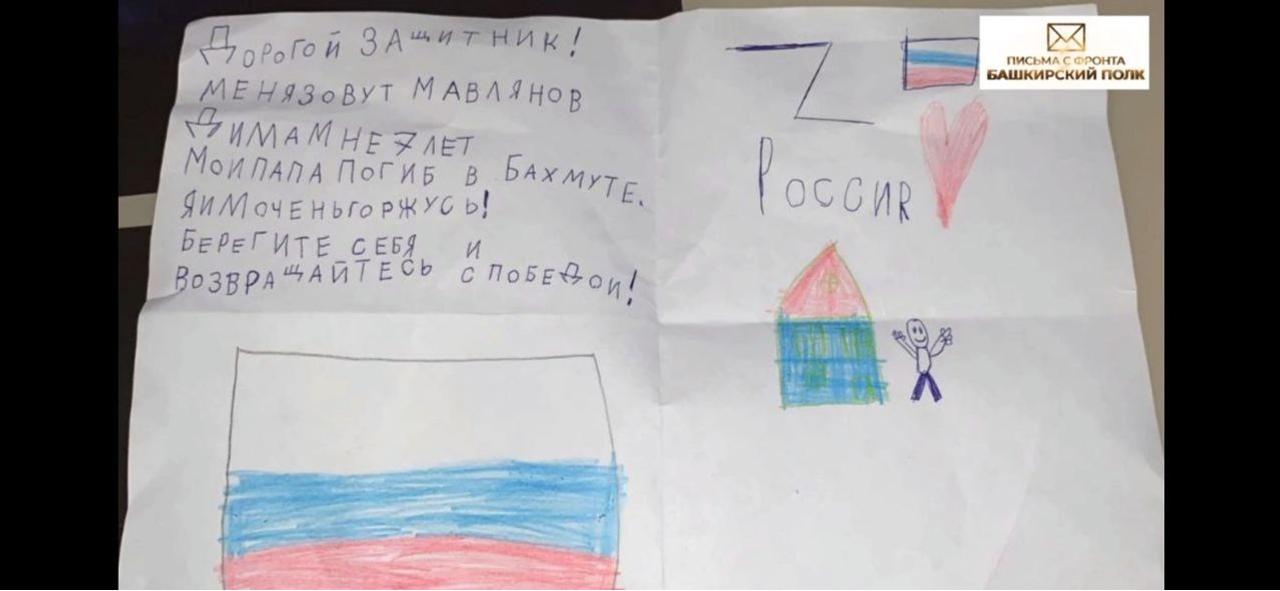 ДОРОГОЙ ЗАЩИТНИК!
МЕНЯЗОВУТ МАВЛЯНОВ
ДИМАМНЕ 7 ЛЕТ
МОИПАПА ПОГИБ В БАХМУТЕ.
ЯИМОЧЕНЬГОРЖУСЬ!
БЕРЕГИТЕ СЕБЯ И
ВОЗВРАЩАЙТЕСЬ С ПОБЕДОИ!
Z
РОССИЯ
ПИСЬМА С ФРОНТА
БАШКИРСКИЙ ПОЛК